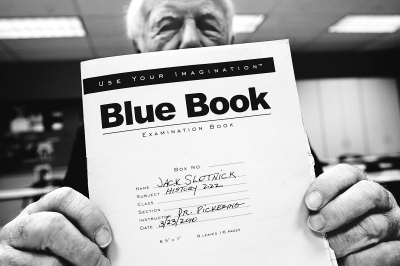 USE YOUR IMAGINATION™
Blue Book
EXAMINATION BOOK
BOX NO.
NAME JACK SLOTNICK
SUBJECT HISTORY 222
CLASS
SECTION
INSTRUCTOR DR. PICKERING
DATE 3/23/2010
8.5" x 7" 8 LEAVES 16 PAGES